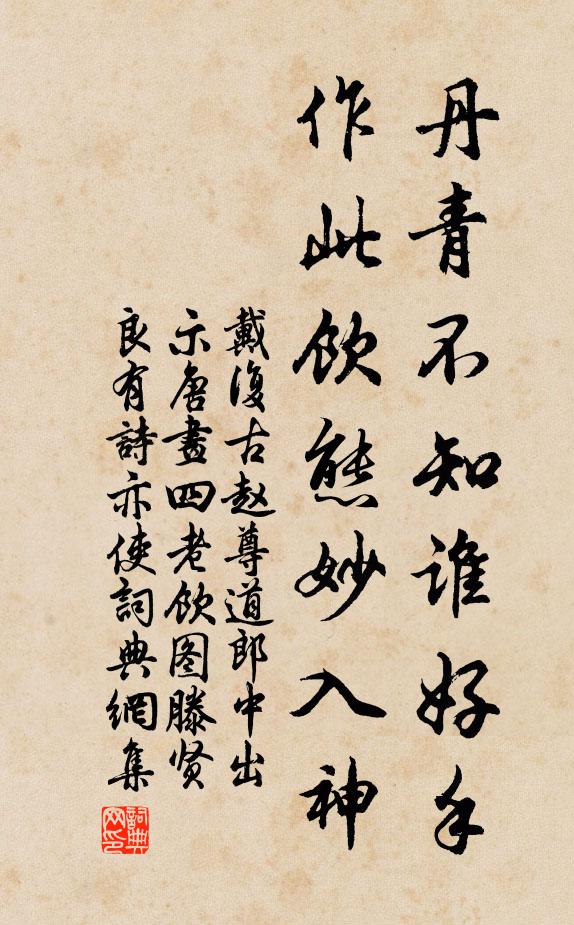 丹青不知谁好手
作此饮态妙入神
戴復古赵尊道郎中出
示唐畫四老饮图滕贤
良有詩亦使詞典網集
詞典
网印